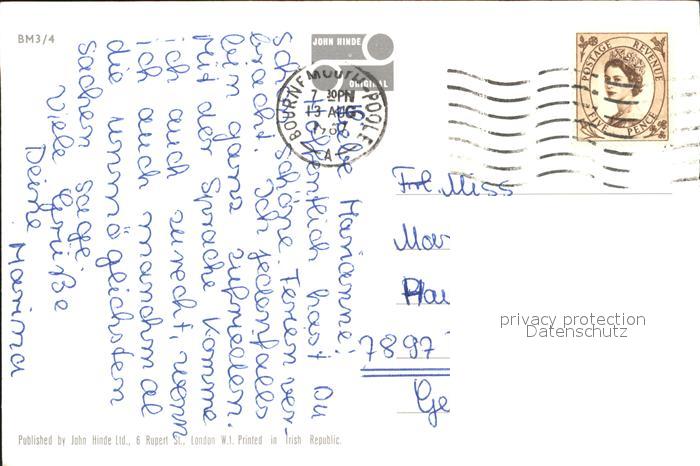 BM3/4
JOHN HINDE
ORIGINAL
BOURNEMOUTH-POOLE
7 30PM
13 AUG
1966
A
POSTAGE REVENUE
FIVE PENCE
Liebe Marianne!
Hoffentlich hast Du
schöne Ferien ver-
bracht. Ich jedenfalls
bin ganz zufrieden.
Mit der Sprache komme
ich auch zurecht, wenn
ich auch manchmal
die unmöglichsten
Sachen sage.
Viele Grüße
Deine Marina
Frl. Miss
Mar
Hau
7897
Ge
privacy protection
Datenschutz
Published by John Hinde Ltd., 6 Rupert St., London W.1. Printed in Irish Republic.